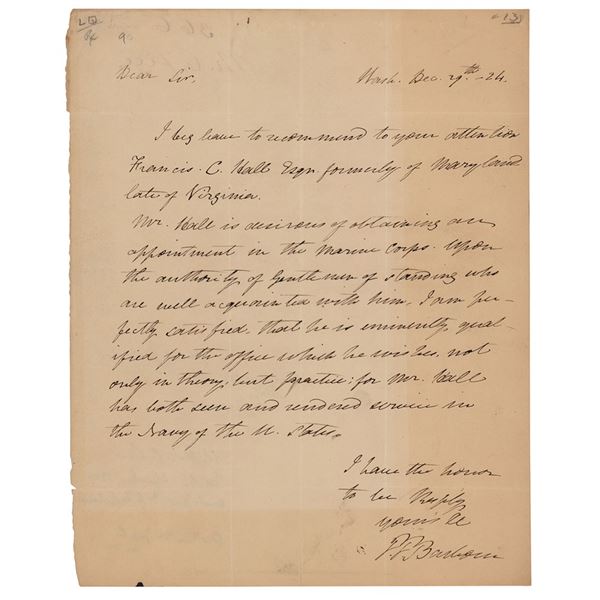 13
Dear Sir,
Wash. Dec. 29th -24.
I beg leave to recommend to your attention
Francis. C. Hall Esqr. formerly of Maryland
late of Virginia.
Mr. Hall is desirous of obtaining an
appointment in the Marine Corps. Upon
the authority of Gentlemen of standing who
are well acquainted with him, I am per-
fectly satisfied, that he is eminently, qual-
ified for the office which he wishes, not
only in theory, but practice: for Mr. Hall
has both seen and rendered service in
the Navy of the U. States.
I have the honor
to be Respfy
yours &c
P P Barbour